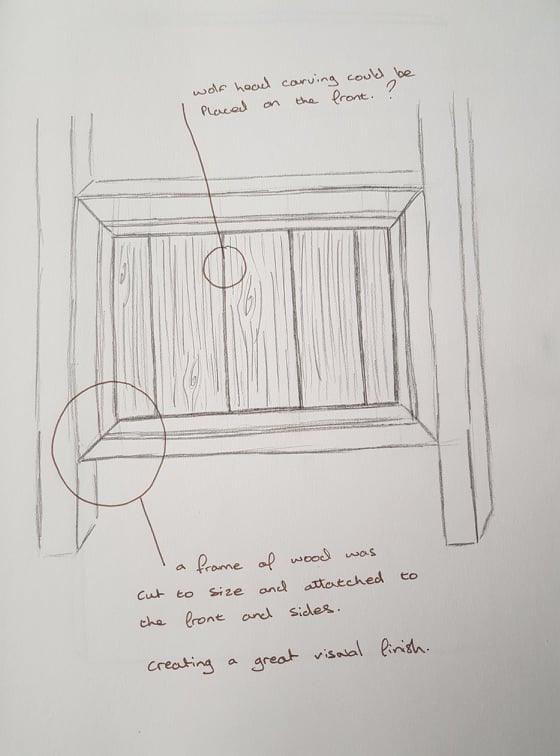 wolf head carving could be
Placed on the front. ?
a frame of wood was
cut to size and attatched to
the front and sides.
creating a great visual finish.